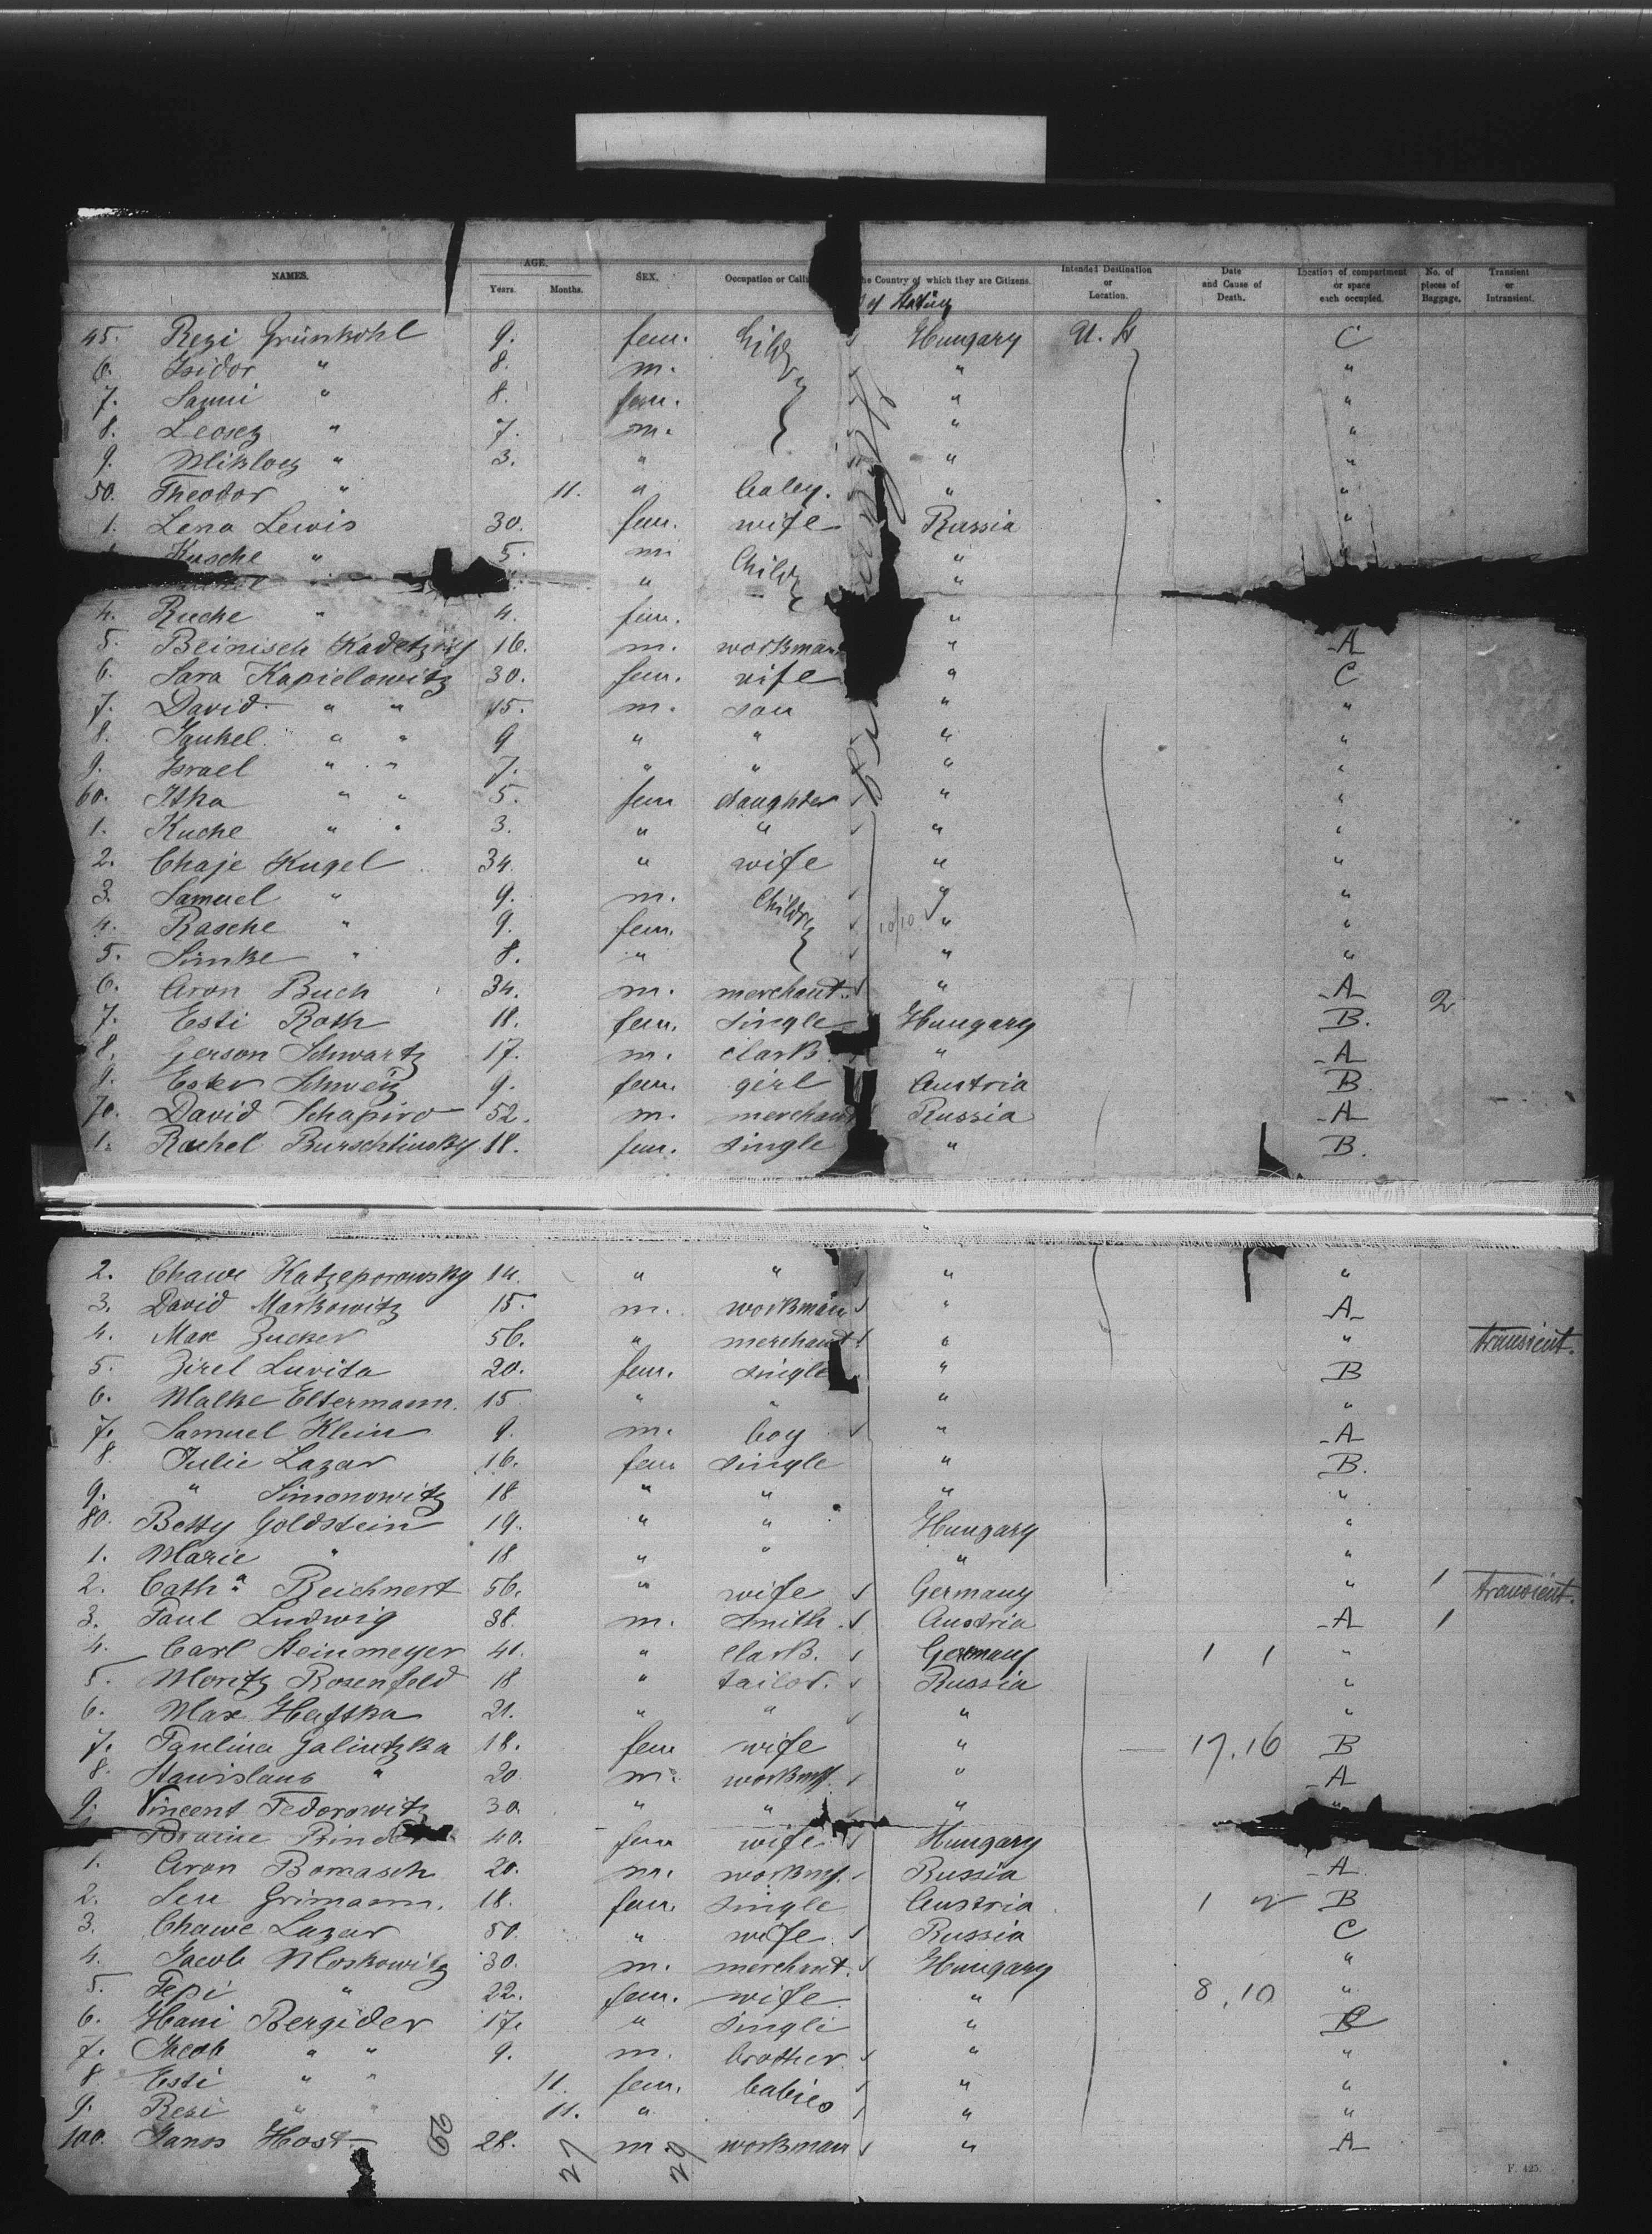 NAMES. AGE. Years. Months. SEX. Occupation or Calli he Country of which they are Citizens. Intended Destination or Location. Date and Cause of Death. Location of compartment or space each occupied. No. of pieces of Baggage. Transient or Intransient.
45. Regi Grünkohl 9. fem. Childr Hungary U. St C
6. Isidor " 8. m. " "
7. Sanni " 8. fem. " "
8. Leosez " 7. m. " "
9. Mikloez " 3. " " "
50. Theodor " 11. " baby. " "
1. Lena Lewis 30. fem. wife Russia "
Kusche " 5. m. Childr " "
" "
4. Ruche " 4. fem. "
5. Beinisch Kadetzky 16. m. workman " A
6. Sara Kapielowitz 30. fem. wife " C
7. David " " 15. m. son " "
8. Jankel " " 9 " " " "
9. Israel " " 7. " " " "
60. Itka " " 5. fem daughter " "
1. Kuche " " 3. " " " "
2. Chaje Kugel 34. " wife " "
3. Samuel " 9. m. Childr " "
4. Rasche " 9. fem. 10/10 " "
5. Simke " 8. " " "
6. Aron Buch 34. m. merchant " A
7. Esti Roth 18. fem. single Hungary B. 2
8. Gerson Schwartz 17. m. clark " A
9. Ester Schweiz 9. fem. girl Austria B.
70. David Schapiro 52. m. merchant Russia A
1. Rachel Burschtinsky 18. fem. single " B.
2. Chawe Katzeporowsky 14. " " " "
3. David Markowitz 15. m. workman " A
4. Max Zucker 56. " merchant " " transient.
5. Zirel Luvita 20. fem. single " B
6. Malke Eltermann. 15 " " " "
7. Samuel Klein 9. m. boy " A
8. Julie Lazar 16. fem single " B.
9. " Simonowitz 18 " " " "
80. Betty Goldstein 19. " " Hungary "
1. Marie " 18 " " " "
2. Cath a Beichnert 56. " wife Germany " 1 transient.
3. Paul Ludwig 38. m. smith. Austria A 1
4. Carl Steinmeyer 41. " clark. Germany 1 1 "
5. Moritz Rosenfeld 18 " tailor. Russia "
6. Max Haftka 21. " " " "
7. Paulina Galintzka 18. fem wife " 17.16 B
8. Stanislaus " 20 m. workmn. " A
9. Vincent Fedorowitz 30. " " " "
Braine Binder 40. fem wife Hungary
1. Aron Bomasch 20. m. workmn. Russia A
2. Leu Grimann. 18. fem. single Austria 1 2 B
3. Chawe Lazar 50. " wife. Russia C
4. Jacob Moskowitz 30. m. merchant. Hungary "
5. Pepi " 22. fem. wife " 8.10 "
6. Hani Bergider 17. " single " C
7. Jacob " " 9. m. brother " "
8. Esti " " 11. fem. babies " "
9. Resi " " 11. " " "
100. Janos Host 28. m. workman " A
63 27 29
F. 425.